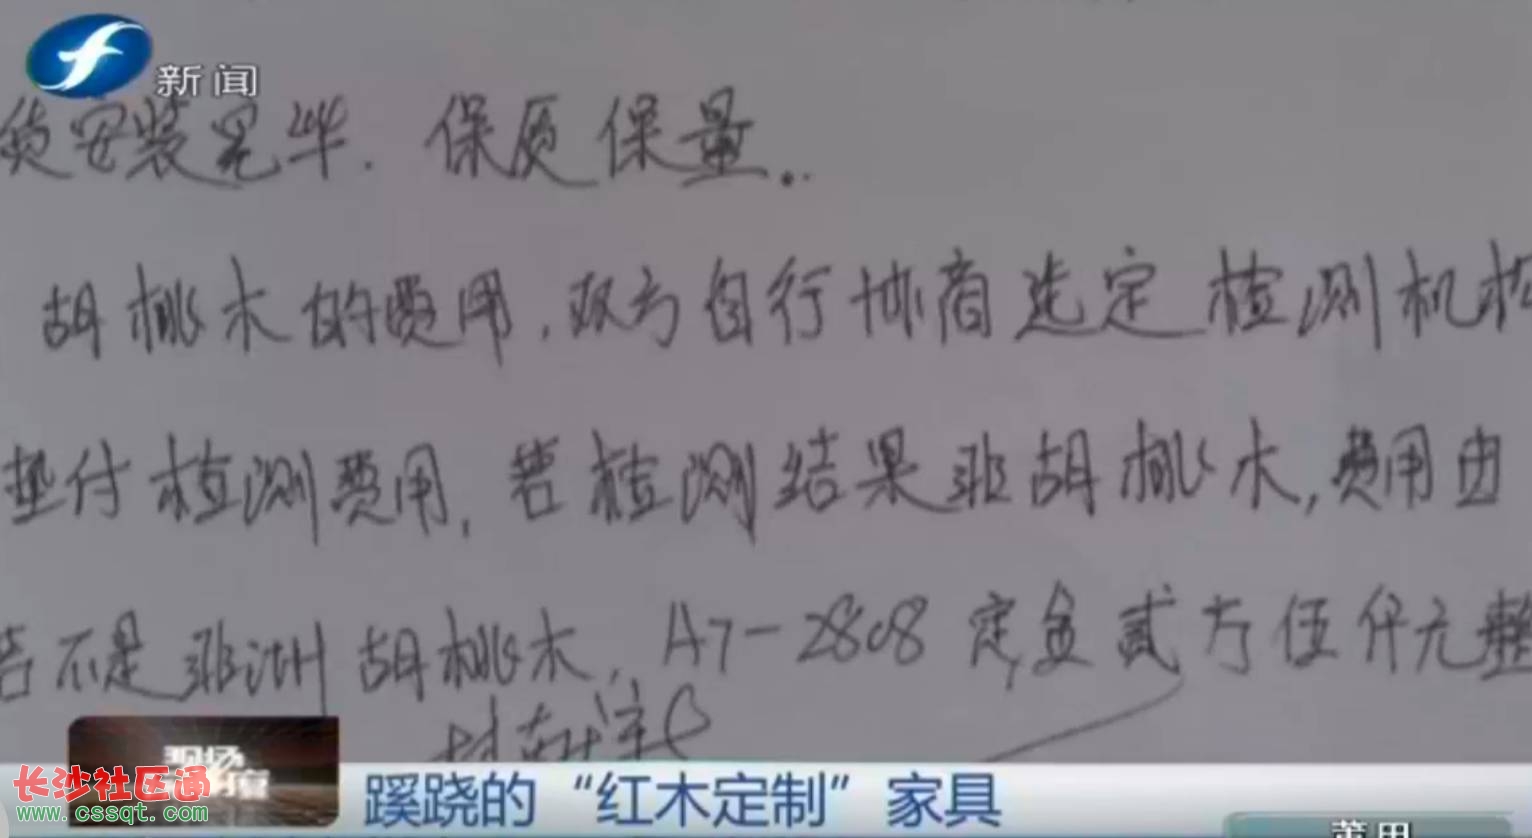 新闻
货安装完毕.保质保量..
胡桃木的费用,双方自行协商选定检测机构
垫付检测费用,若检测结果非胡桃木,费用由
若不是非洲胡桃木,A7-2808定金贰万伍仟元整
现场
长沙社区通
www.cssqt.com
蹊跷的“红木定制”家具
莆田